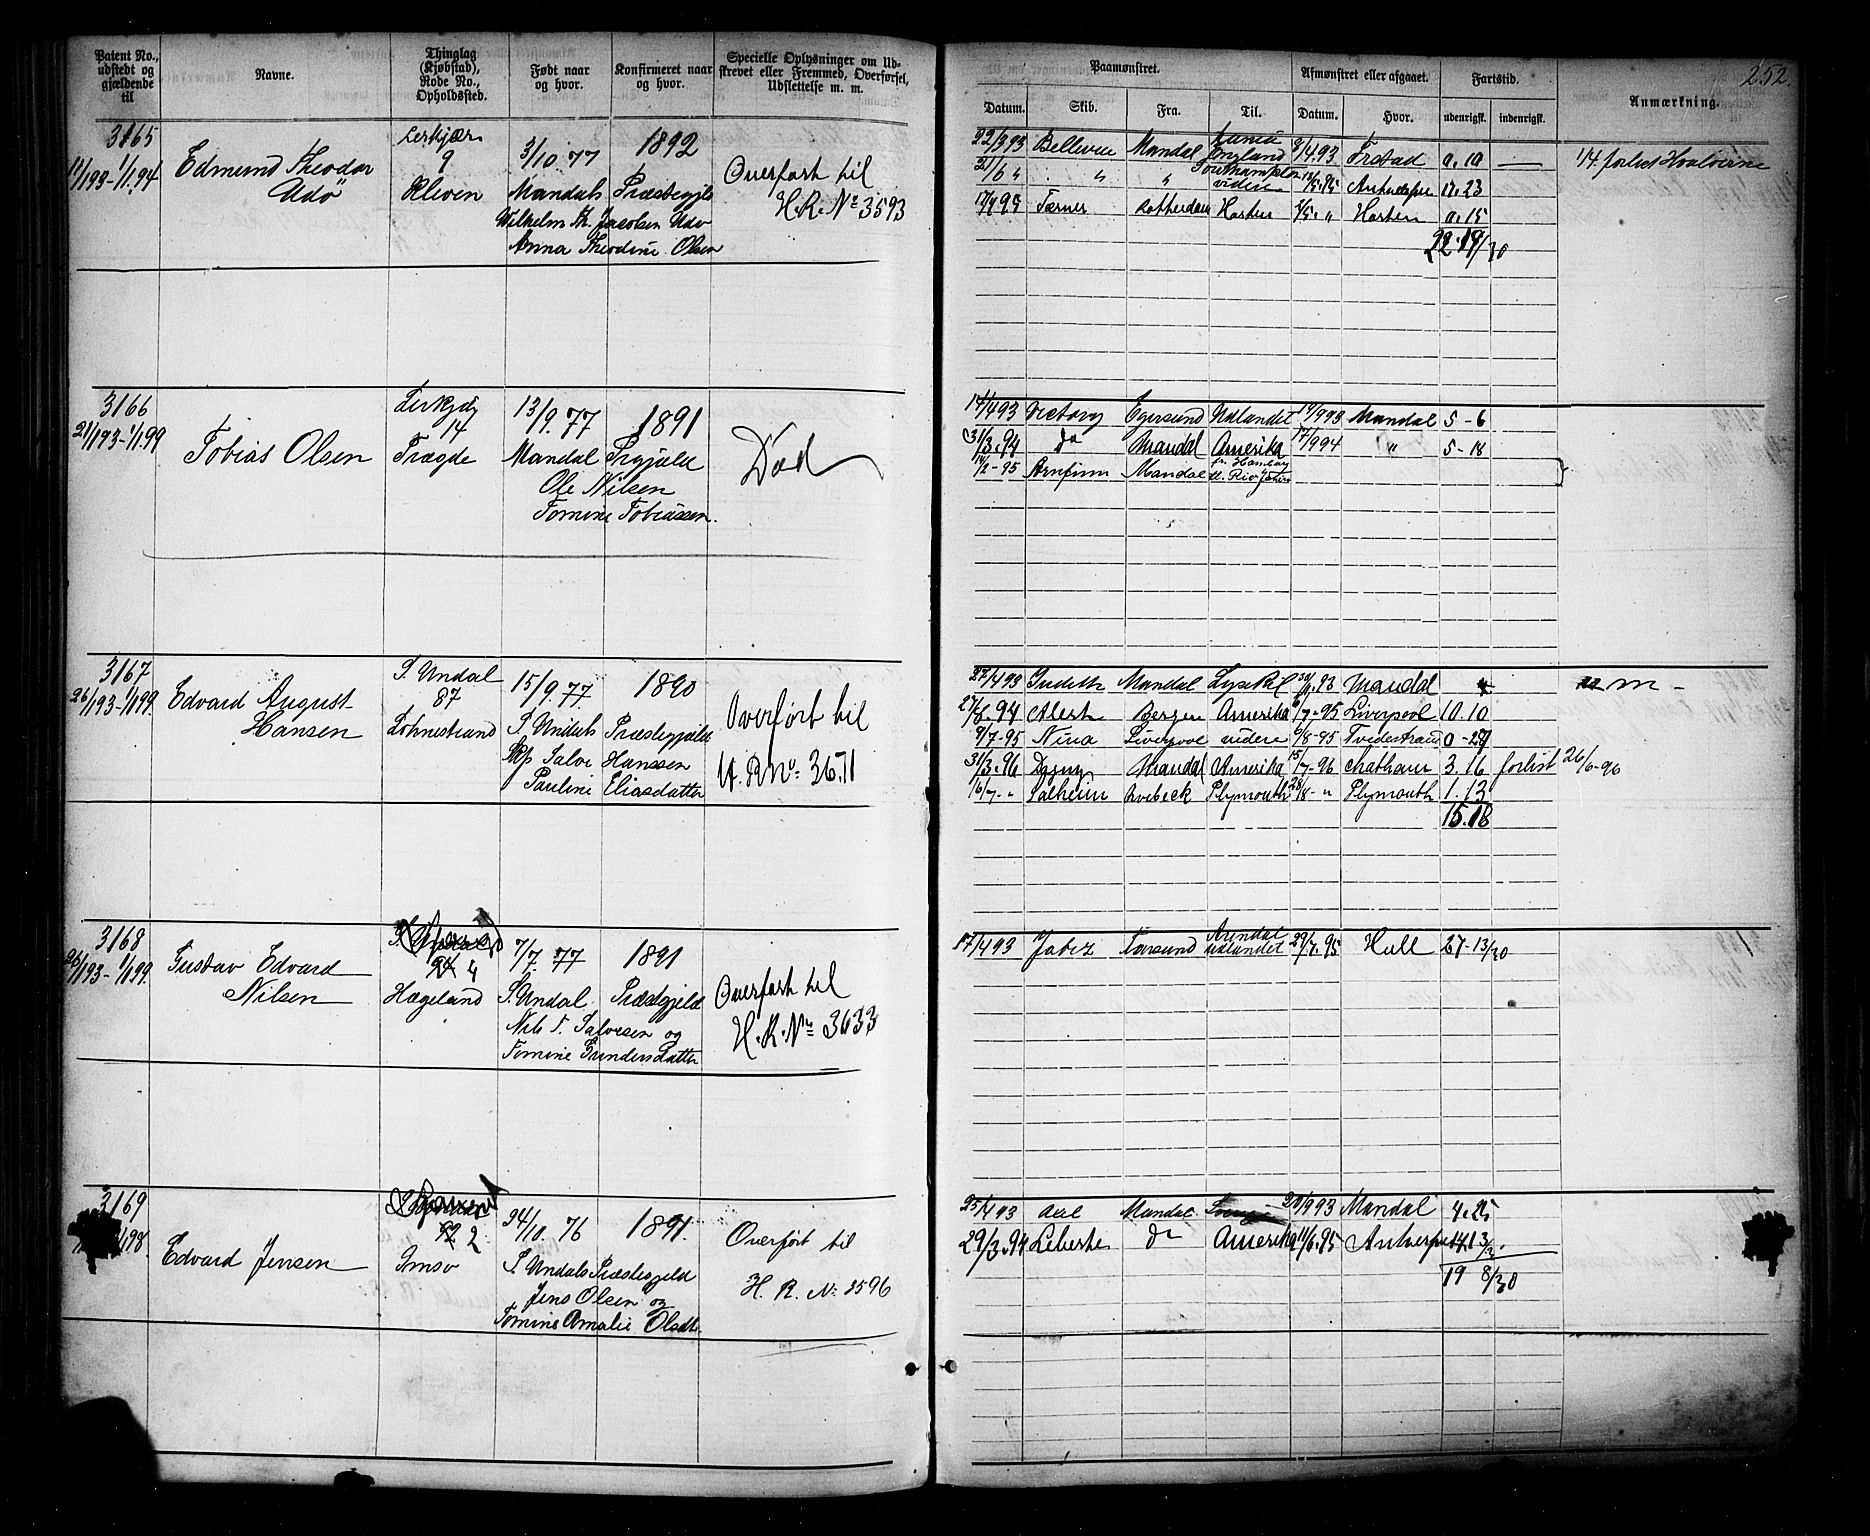 252.
Patent No., udstedt og gjældende til
Navne.
Thinglag (Kjøbstad), Rode No., Opholdssted.
Født naar og hvor.
Konfirmeret naar og hvor.
Specielle Oplysninger om Udskrevet eller Fremmed, Overførsel, Udslettelse m. m.
Paamønstret.
Afmønstret eller afgaaet.
Fartstid.
Anmærkning.
Datum. Skib. Fra. Til. Datum. Hvor. udenrigsk. indenrigsk.
3165
11/1 93 - 1/1 94
Edmund Theodor
Udö
9
Kleven
3/10.77
Mandals
1892
Præstegjeld
Wilhelm Th. Jacobsen Udö
Anna Theodine Olsen
Overført til
H.R. No 3593
22/3 93 Bellevue Mandal England 9/4.93 0.10 —
1/4 forlist Hvaløerne
21/6 " " " Southampton videre Antwerpen 23
Terner Rotterdam Horten Horten 0.15
22.19/30
3166
21/1 93 - 1/1 99
Tobias Olsen
14
Trægde
13/9.77
Mandal
1891
Prgjeld
Ole Nilsen
Tomine Tobiassen.
Død
14/4 93 Victory Egersund Udlandet Mandal 5-6
31/3.94 do Mandal Amerika 17/9 94 " 5-18
14/2-95 Arnfinn Mandal
3167
26/1 93 - 1/1 99
Edvard August
Hansen
S. Undal
87
15/9.77.
S. Undals
1890
Præstegjeld
Salve Hanssen
Pauline Eliasdatter
Overført til
H.R. No. 3511
27/4 93 Judith Mandal Lysekil Mandal
m -
27/8.94 Alert Bergen Amerika 6/7-95 Liverpool 10.10
9/7-95 Nina Liverpool videre 6/8-95 Tvedestrand 0-29
31/3.96 Dagny Mandal Amerika 15/7-96 Chatham 3.16 forlist 26/6-96
16/7-" Solheim Plymouth 28/8-" Plymouth 1.13
15.18
3168
26/1 93 - 1/1 99.
Gustav Edvard
Nilsen
4
Hægeland
7/7.77
S. Undal
1891
Præstegjeld
Nils T. Salvesen og
Tomine Gundersdatter
Overført til
H.R. No 3633
17/4 93 Jabez Farsund Arendal udlandet 29/7.95 Hull 27-13/30
3169
Edvard Jensen
2
Imsø
24/10.76
1891.
S. Undals Præstegjeld
Jens Olsen og
Tomine Amalie Olsdtr.
Overført til
H.R. No. 3596
25/4 93 Axel Mandal 20/9 93 Mandal 4.25
29/3.94 do Amerika 11/6.95 Antwerpen
19 8/30